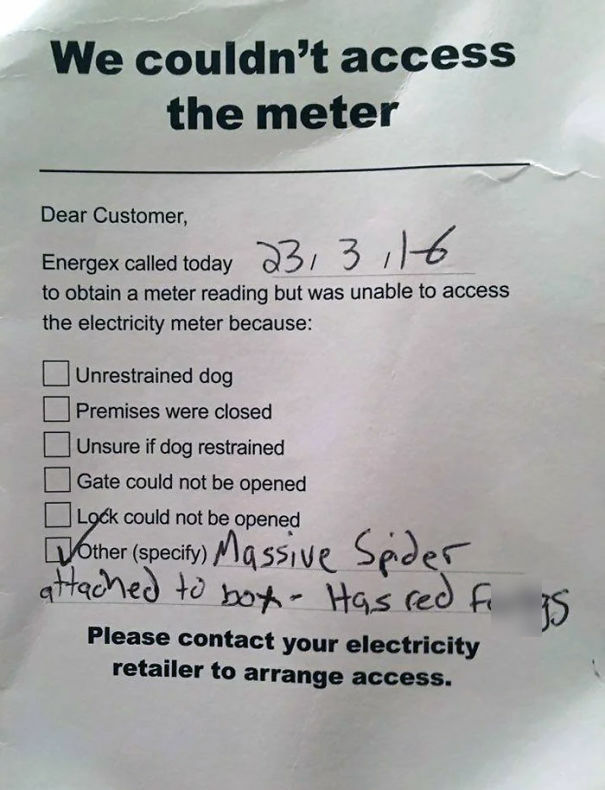 We couldn't access
the meter
Dear Customer,
Energex called today 23/ 3 /16
to obtain a meter reading but was unable to access
the electricity meter because:
Unrestrained dog
Premises were closed
Unsure if dog restrained
Gate could not be opened
Lock could not be opened
Other (specify) Massive Spider
attached to box - Has red
Please contact your electricity
retailer to arrange access.